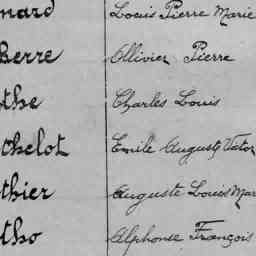 nard Louis Pierre Marie
herre Ollivier Pierre
the Charles Louis
chelot Emile Auguste Victor
thier Auguste Louis Mar
tho Alphonse François